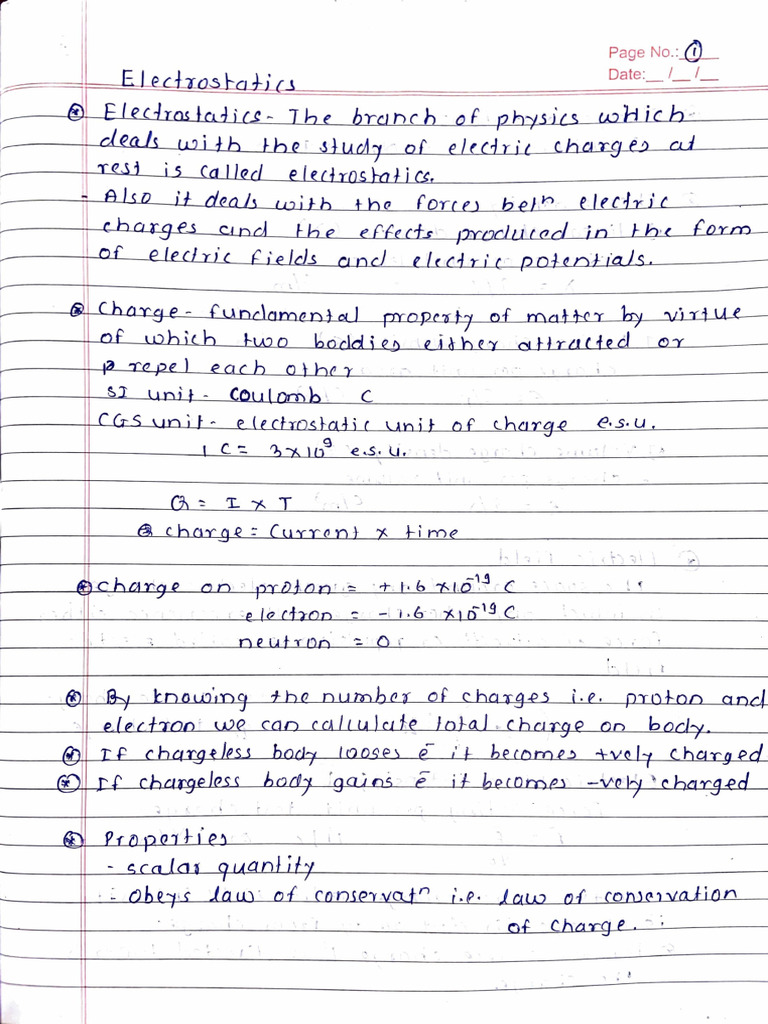 Page No.: 1
Date:__ /__ /__
Electrostatics
Electrostatics - The branch of physics which
deals with the study of electric charges at
rest is called electrostatics.
- Also it deals with the forces betn electric
charges and the effects produced in the form
of electric fields and electric potentials.
Charge - fundamental property of matter by virtue
of which two boddies either attracted or
repel each other
SI unit - Coulomb C
CGS unit - electrostatic unit of charge e.s.u.
1 C = 3 × 10⁹ e.s.u.
Q = I × T
charge = Current × time
Charge on proton = +1.6 × 10⁻¹⁹ C
electron = -1.6 × 10⁻¹⁹ C
neutron = 0
By knowing the number of charges i.e. proton and
electron we can calculate total charge on body.
If chargeless body looses ē it becomes +vely charged
If chargeless body gains ē it becomes -vely charged
Properties
- scalar quantity
- Obeys law of conservatⁿ i.e. law of conservation
of charge.